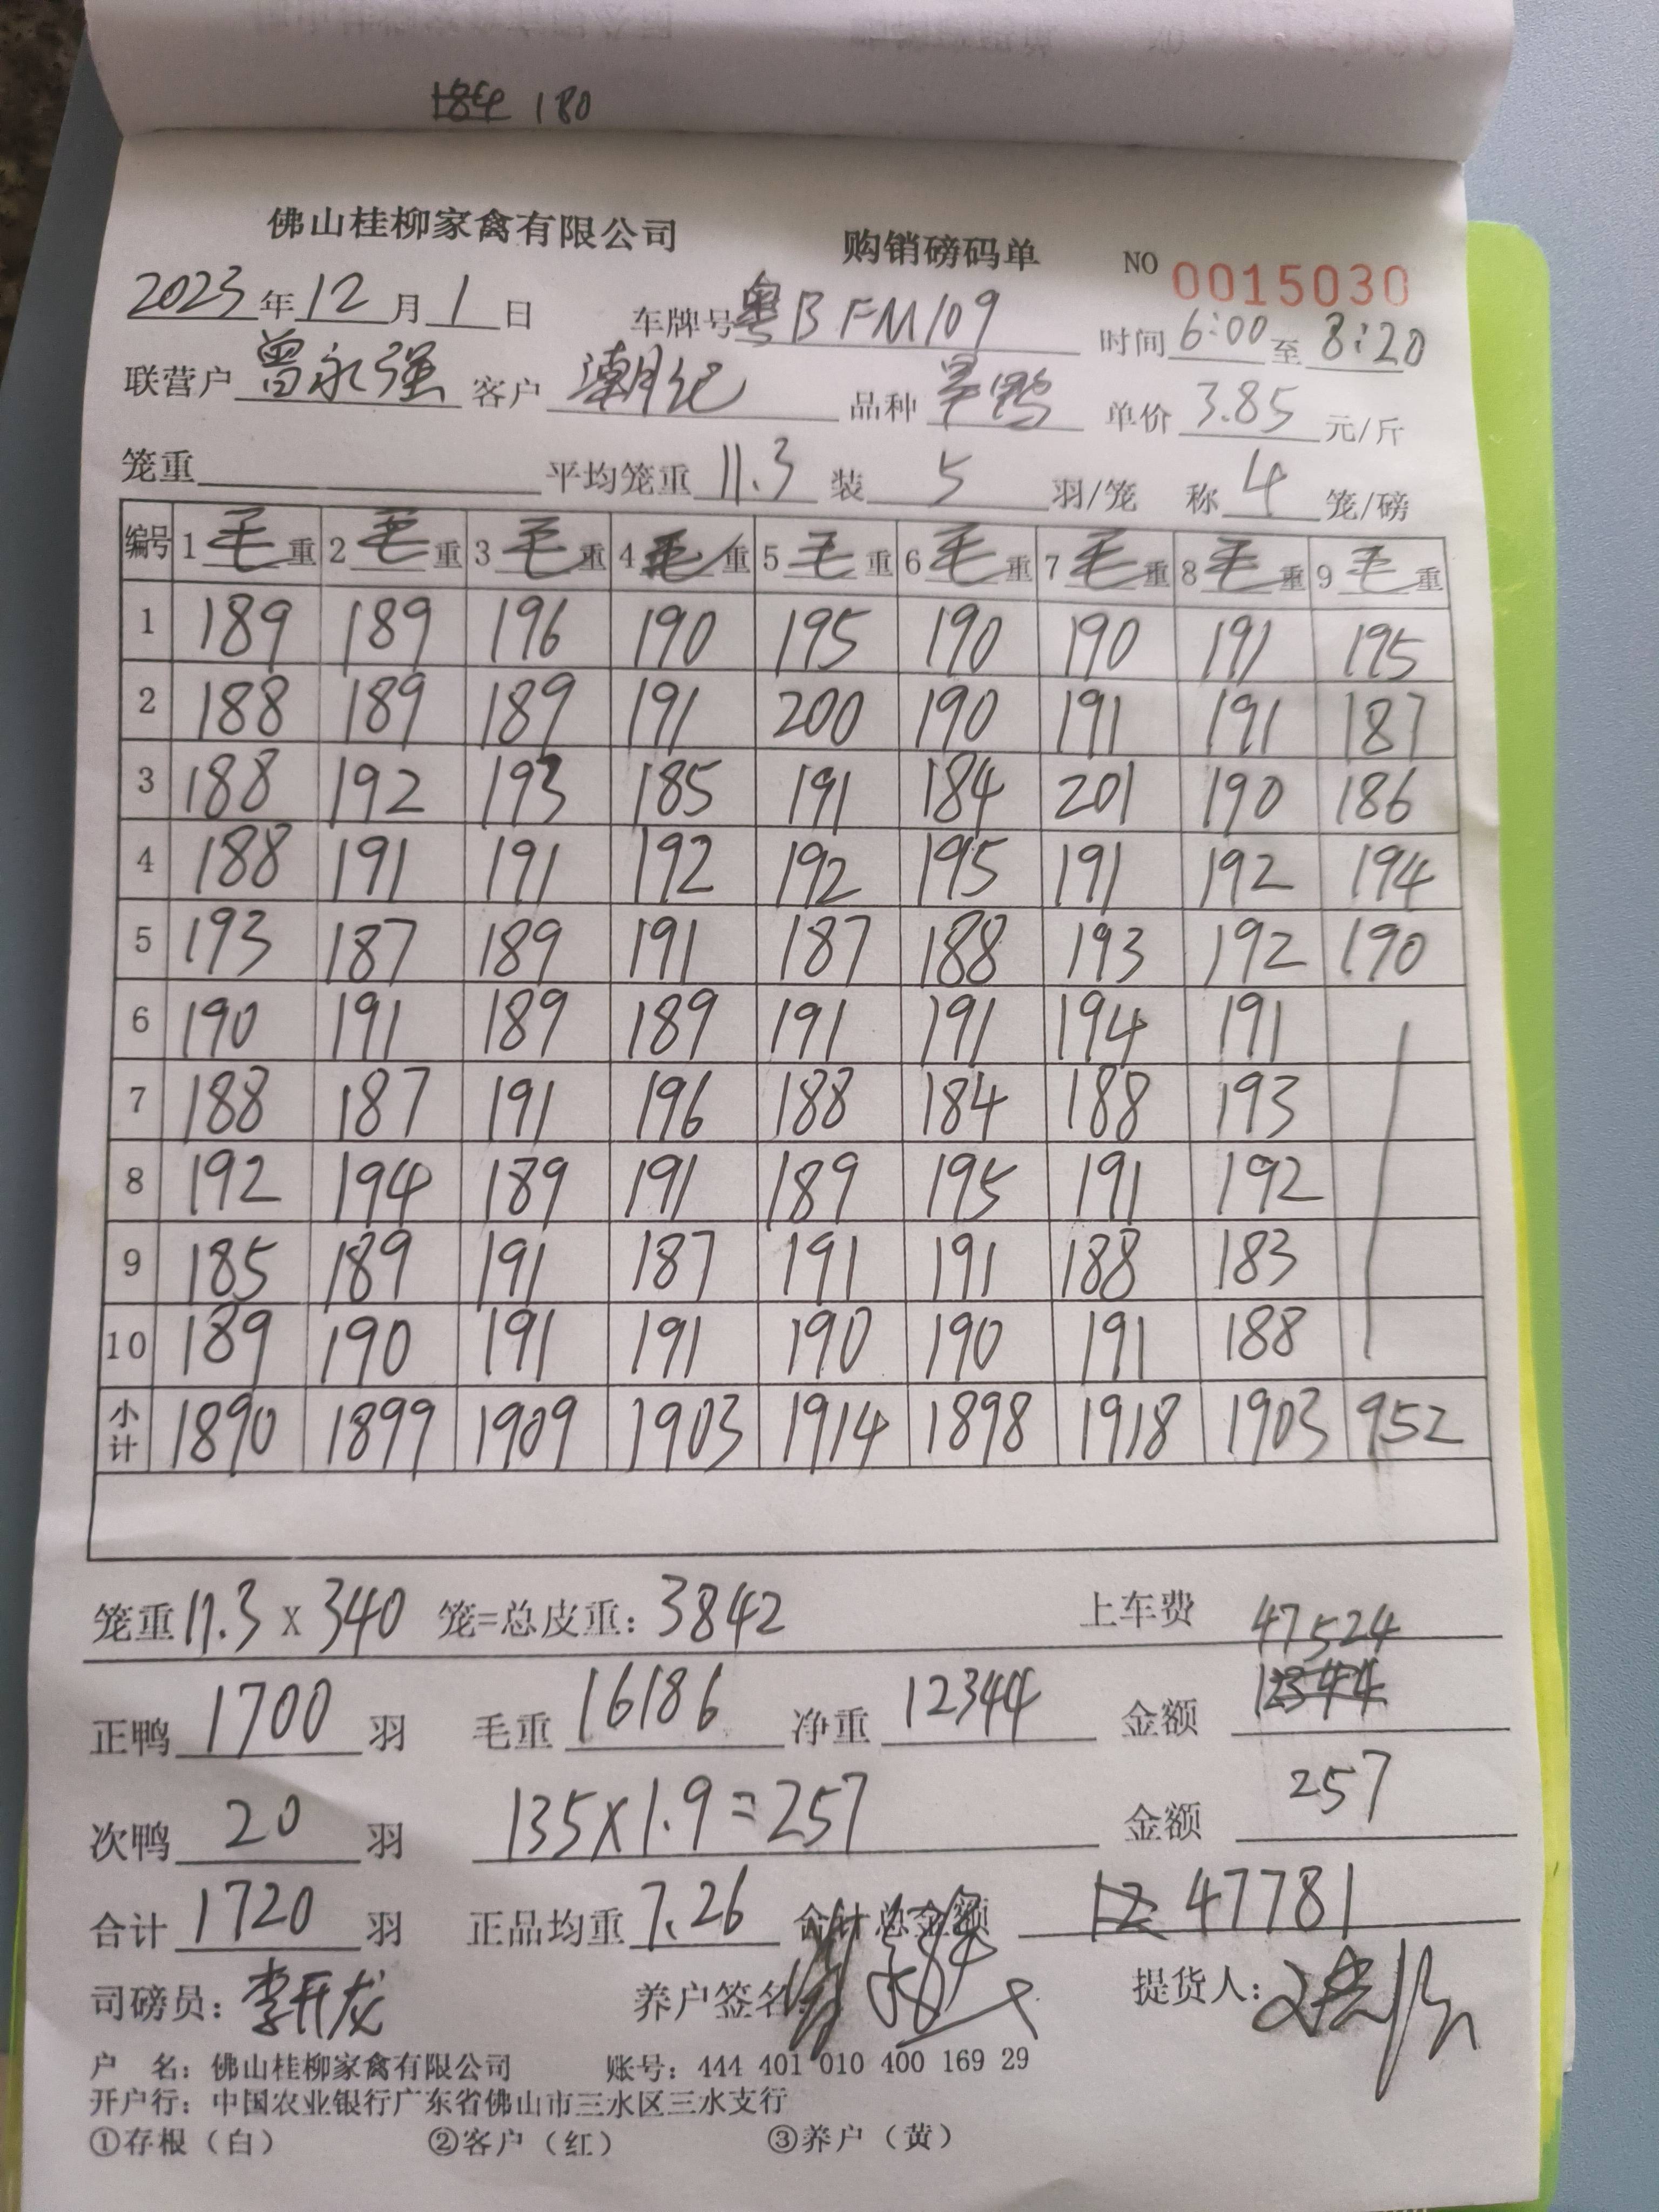 180
佛山桂柳家禽有限公司 购销磅码单 NO 0015030
2023年12月1日 车牌号粤BFM109 时间6:00至8:20
联营户曾永强 客户潮记 品种 单价3.85元/斤
笼重 平均笼重11.3 装5羽/笼 称4笼/磅
编号 1毛重 2毛重 3毛重 4毛重 5毛重 6毛重 7毛重 8毛重 9毛重
1 189 189 196 190 195 190 190 191 195
2 188 189 189 191 200 190 191 191 187
3 188 192 193 185 191 184 201 190 186
4 188 191 191 192 192 195 191 192 194
5 193 187 189 191 187 188 193 192 190
6 190 191 189 189 191 191 194 191
7 188 187 191 196 188 184 188 193
8 192 194 189 191 189 195 191 192
9 185 189 191 187 191 191 188 183
10 189 190 191 191 190 190 191 188
小计 1890 1899 1909 1903 1914 1898 1918 1903 952
笼重11.3x340笼=总皮重:3842 上车费
47524
正鸭1700羽 毛重16186 净重12344 金额12344
次鸭20羽 135x1.9=257 金额257
合计1720羽 正品均重7.26 合计总金额 12 47781
司磅员:李开龙 养户签名: 提货人:
户 名:佛山桂柳家禽有限公司 账号:444 401 010 400 169 29
开户行:中国农业银行广东省佛山市三水区三水支行
①存根(白) ②客户(红) ③养户(黄)